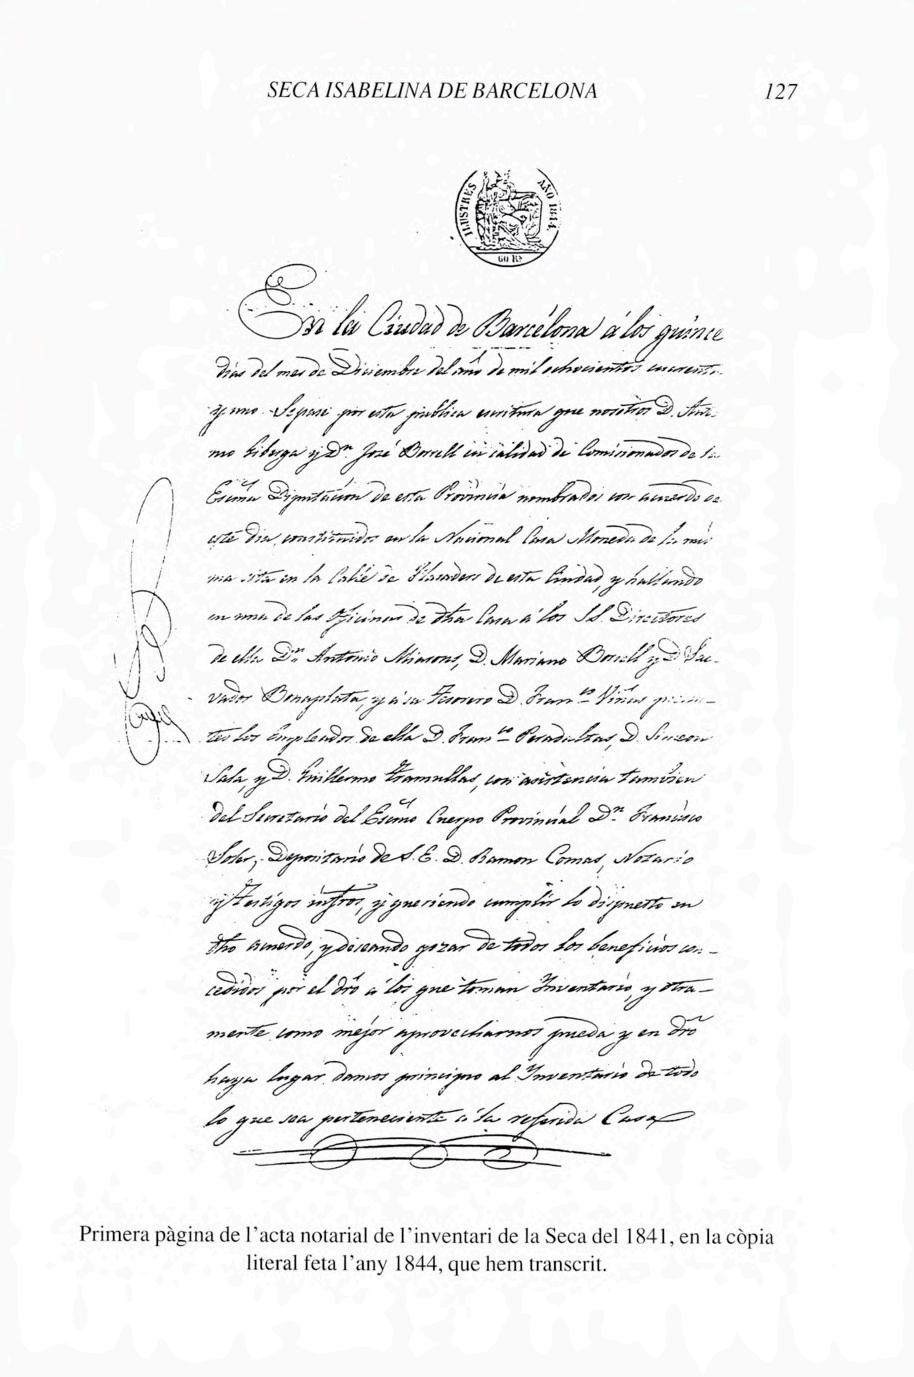 SECA ISABELINA DE BARCELONA 127
ILUSTRES AÑO 1844.
60 Rs
En la Ciudad de Barcélona á los quince
dias del mes de Diciembre del año de mil ochocientos cuarenta
y uno. Sepase por esta publica escritura que nosotros D.
Giberga y Dn. José Borrell en calidad de Comisionados de la
Escma Diputación de esta Provincia nombrados con acuerdo de
este dia, constituidos en la Nacional Casa Moneda de la mis
ma sita en la Calle de Flasaders de esta Ciudad, y hallando
en una de las Oficinas de dha Casa á los SS. Directores
de ella Dn. Antonio Miarons, D. Mariano Borrell y D. Sal-
vador Bonaplata, y á su Tesorero D. Franco Viñas presen-
tes los Empleados de ella D. Franco Paradaltas, D. Simeon
Sala, y D. Guillermo Tramullas, con asistencia tambien
del Secretario del Escmo Cuerpo Provincial Dn. Francisco
Soler, Depositario de S. E. D. Ramon Comas, Notario
y Testigos infros, y queriendo cumplir lo dispuesto en
dho acuerdo, y deseando gozar de todos los beneficios con-
cedidos por el dro á los que toman Inventario, y otra-
mente como mejor aprovecharnos pueda y en dro
haya lugar damos principio al Inventario de todo
lo que sea perteneciente á la referida Casa
Primera pàgina de l'acta notarial de l'inventari de la Seca del 1841, en la còpia
literal feta l'any 1844, que hem transcrit.